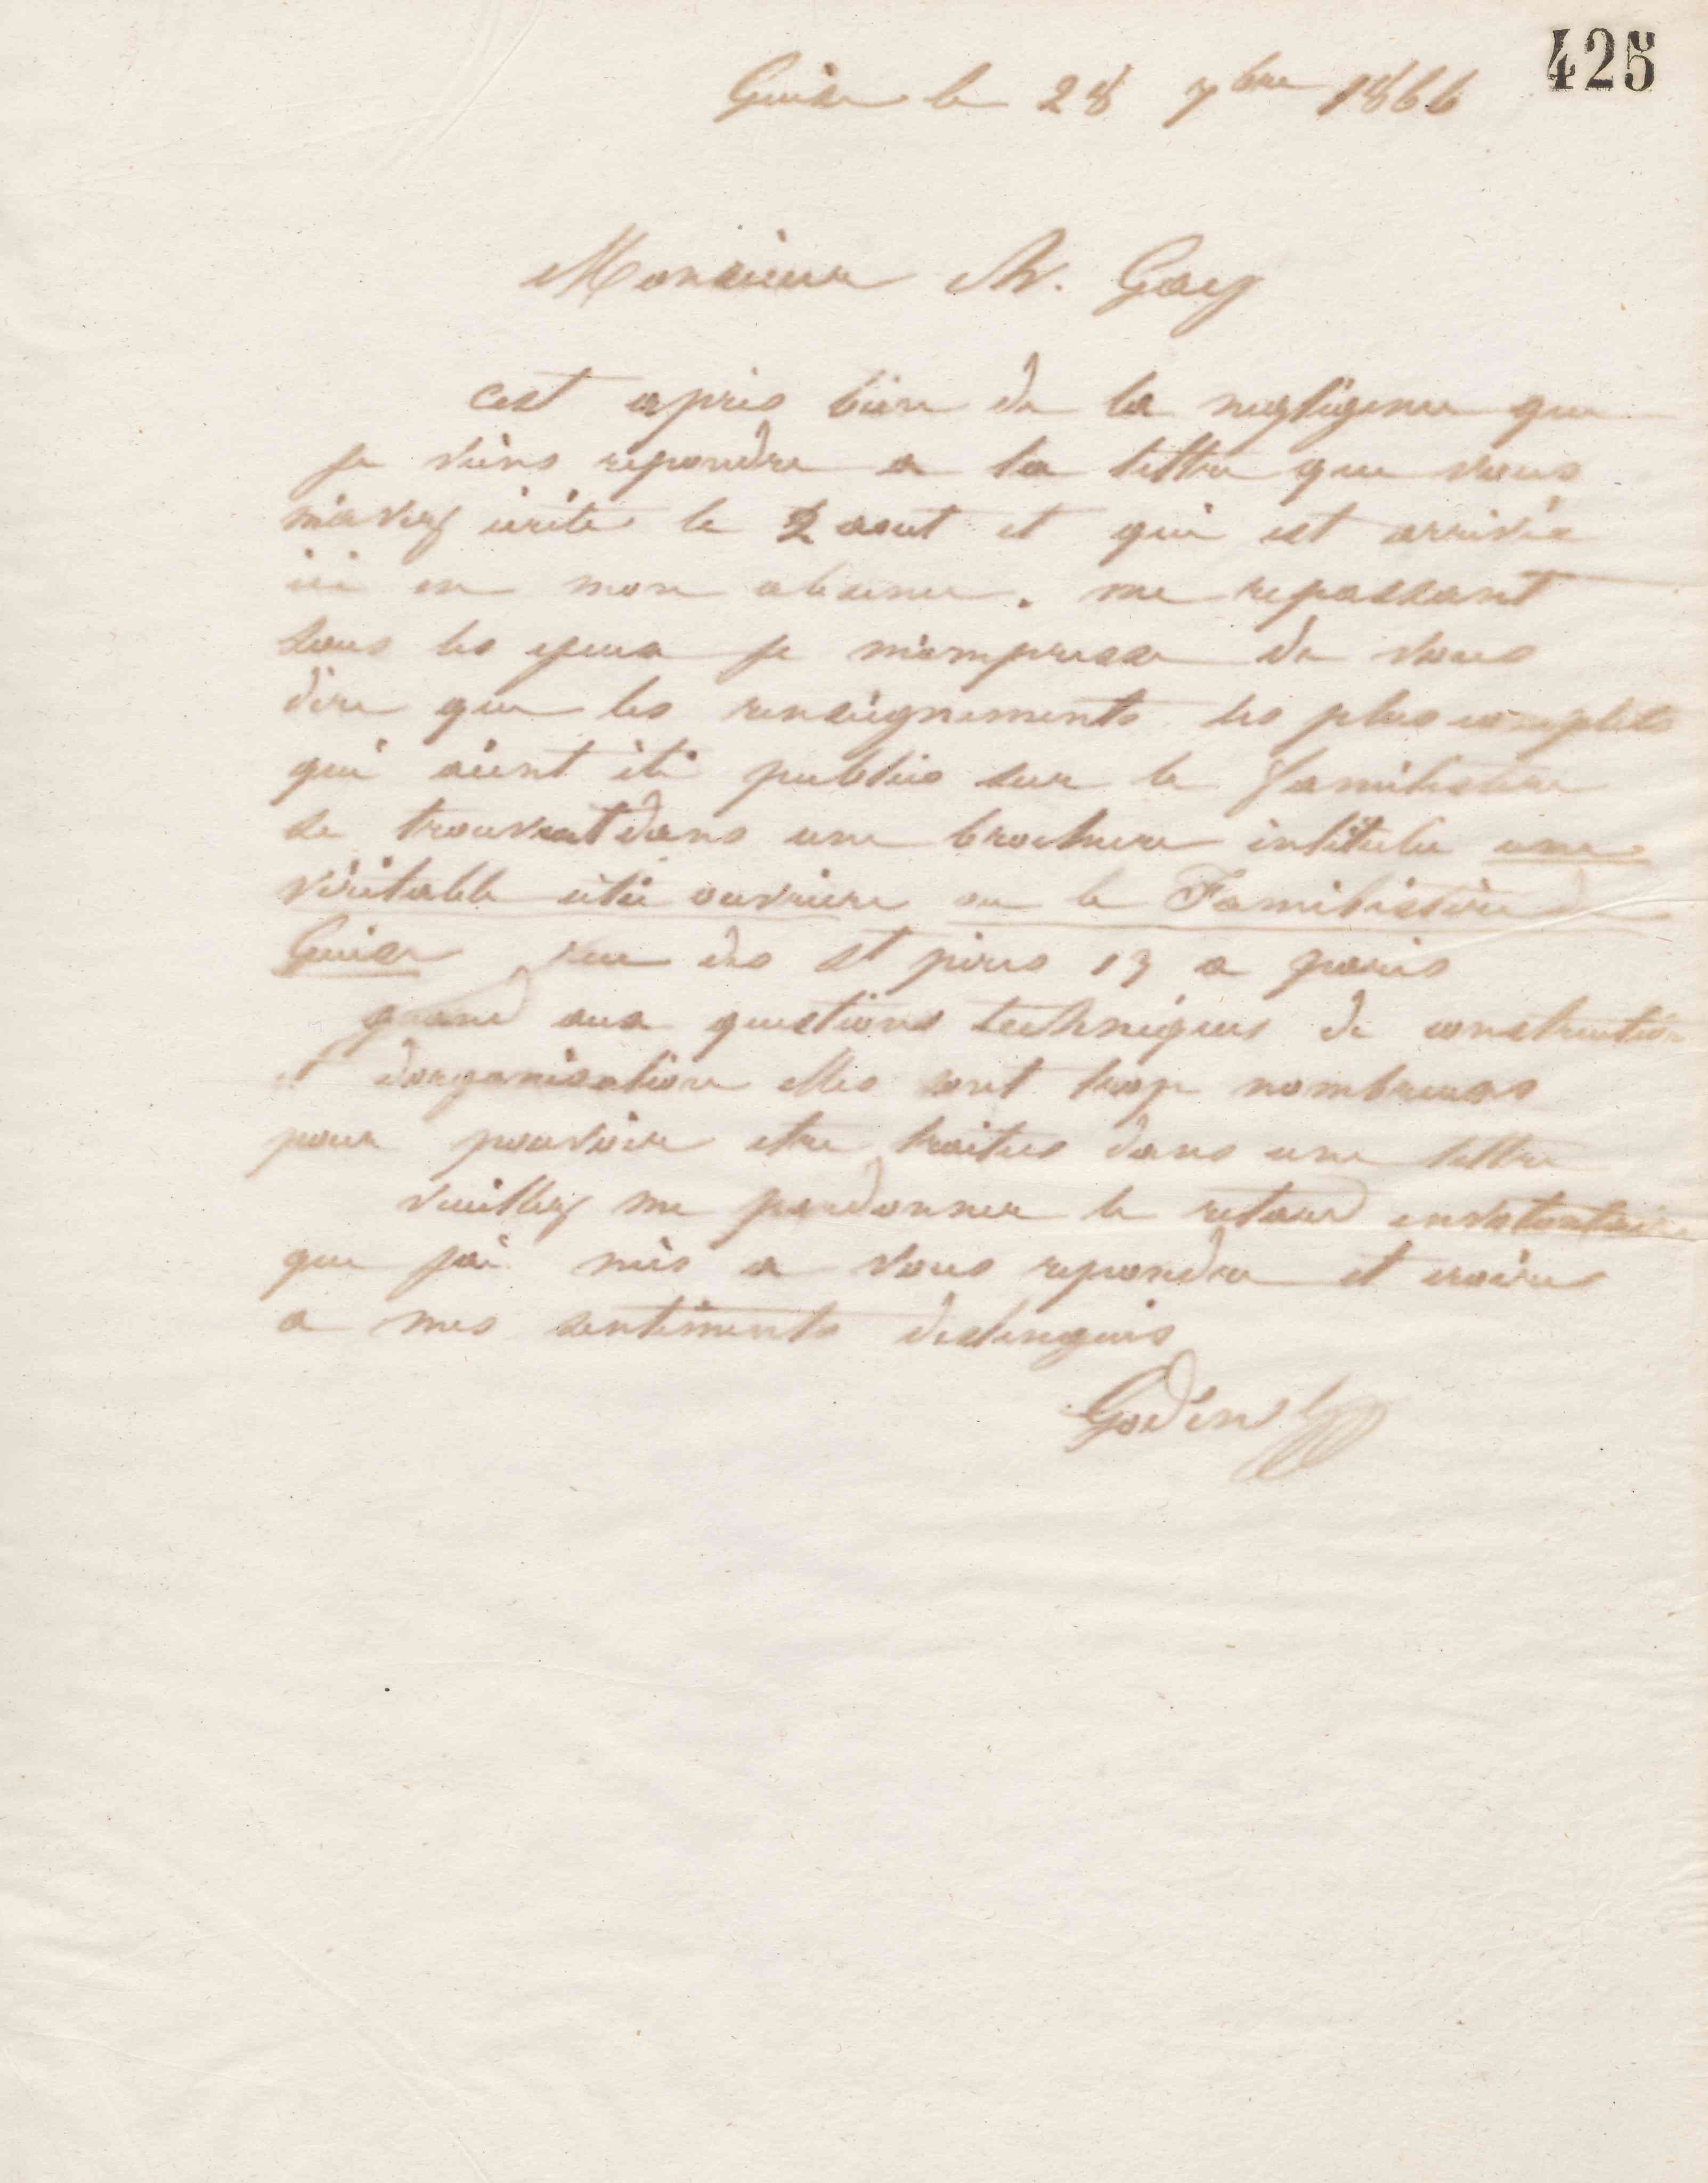 425
Guise le 28 7bre 1866
Monsieur Ch. Gay
cest apres bien de la negligence que
je viens repondre a la lettre que vous
m'avez ecrite le 2 aout et qui est arrivée
ici en mon absence. me repassant
sous les yeux je m'empresse de vous
dire que les renseignements les plus complets
qui aient été publies sur le familistere
se trouvent dans une brochure intitulee une
véritable cité ouvriere ou le Familistère de
Guise rue des st peres 13 a paris
quand aux questions techniques de construction
et dorganisation elles sont trop nombreuses
pour pouvoir etre traitees dans une lettre
veuillez me pardonner le retard
que jai mis a vous repondre et croire
a mes sentiments distingués
Godin